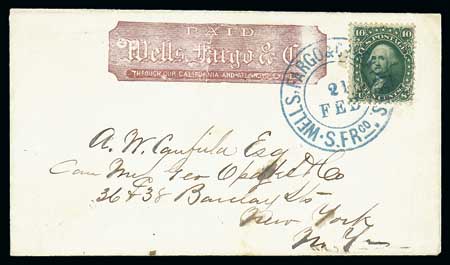 PAID
Wells, Fargo & Co.
THROUGH OUR CALIFORNIA AND ATLANTIC EXPRESS
WELLS, FARGO & CO
21
FEB
S. FRCO
10 10
U.S. POSTAGE
A. W. Canfield Esq
Care Mr Geo & Co
36 & 38 Barclay St
New York
N. Y.